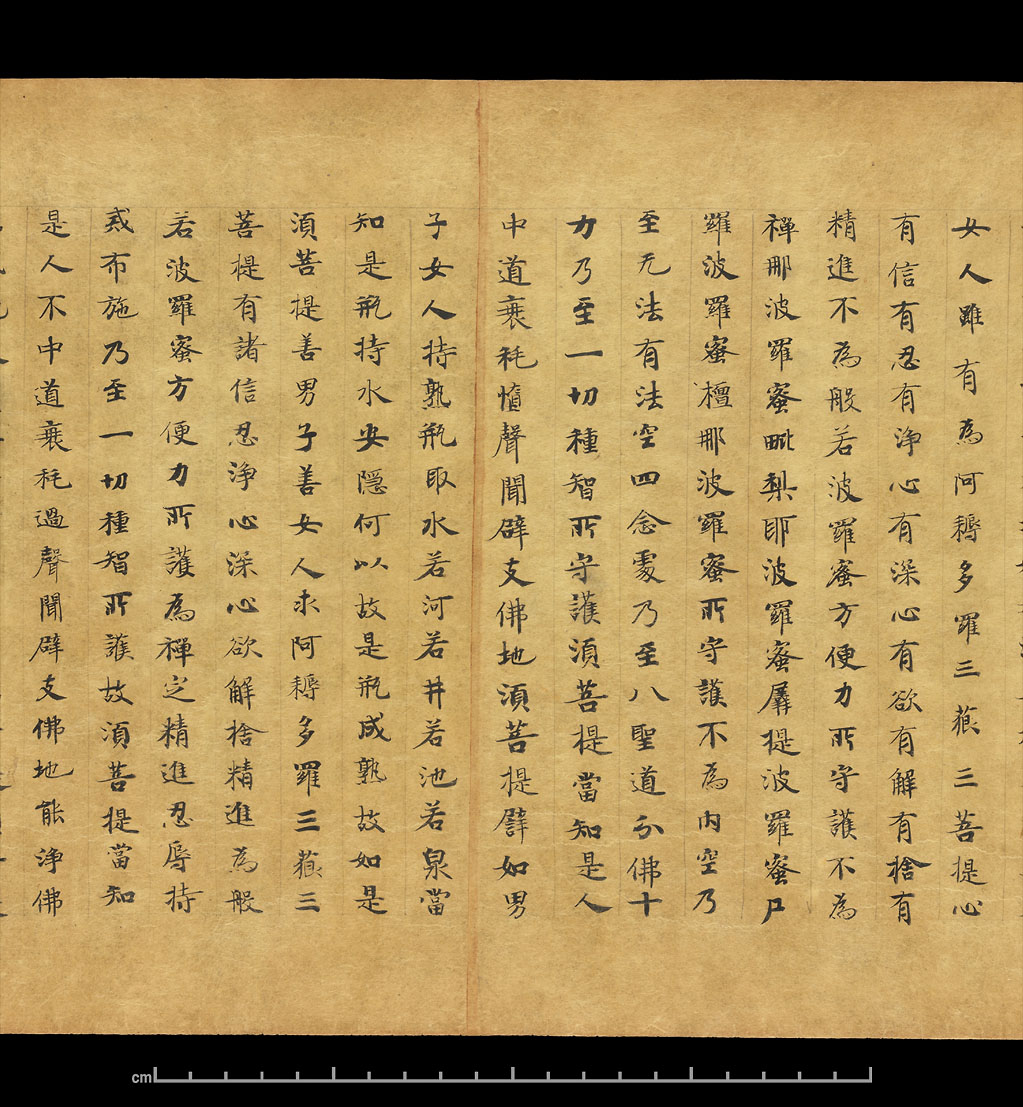 女人雖有為阿耨多羅三藐三菩提心
有信有忍有淨心有深心有欲有解有捨有
精進不為般若波羅蜜方便力所守護不為
禪那波羅蜜毗梨耶波羅蜜羼提波羅蜜尸
羅波羅蜜檀那波羅蜜所守護不為內空乃
至无法有法空四念處乃至八聖道分佛十
力乃至一切種智所守護須菩提當知是人
中道衰秏墮聲聞辟支佛地須菩提譬如男
子女人持熟瓶取水若河若井若池若泉當
知是瓶持水安隱何以故是瓶成熟故如是
須菩提善男子善女人求阿耨多羅三藐三
菩提有諸信忍淨心深心欲解捨精進為般
若波羅蜜方便力所護為禪定精進忍辱持
戒布施乃至一切種智所護故須菩提當知
是人不中道衰秏過聲聞辟支佛地能淨佛